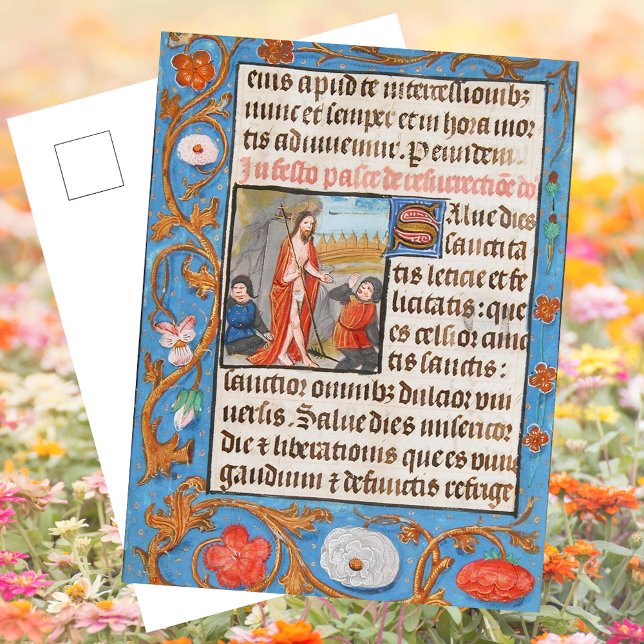 eius apud te intercessionibꝫ
nunc et semper et in hora mor
tis adiuvemur. P eundem.
In festo pasce de resurrectiōe dō
SAlue dies
sanctita
tis leticie et fe
licitatis: que
es celsior omō
tis sanctis:
sanctior omnibꝫ dulcior vni
uersis. Salue dies misericor
die ⁊ liberationis que es viuis
gaudium ⁊ defunctis refrige